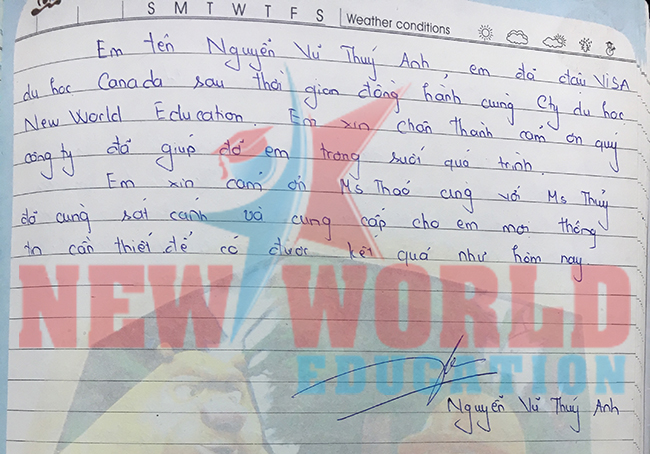 S M T W T F S Weather conditions
Em tên Nguyễn Vũ Thuý Anh, em đã đậu VISA
du học Canada sau thời gian đồng hành cùng Cty du học
New World Education. Em xin chân thành cảm ơn quý
công ty đã giúp đỡ em trong suốt quá trình.
Em xin cảm ơn Ms Thảo cùng với Ms Thuỷ
đã cùng sát cánh và cung cấp cho em mọi thông
tin cần thiết để có được kết quả như hôm nay
NEW WORLD
EDUCATION
Nguyễn Vũ Thuý Anh